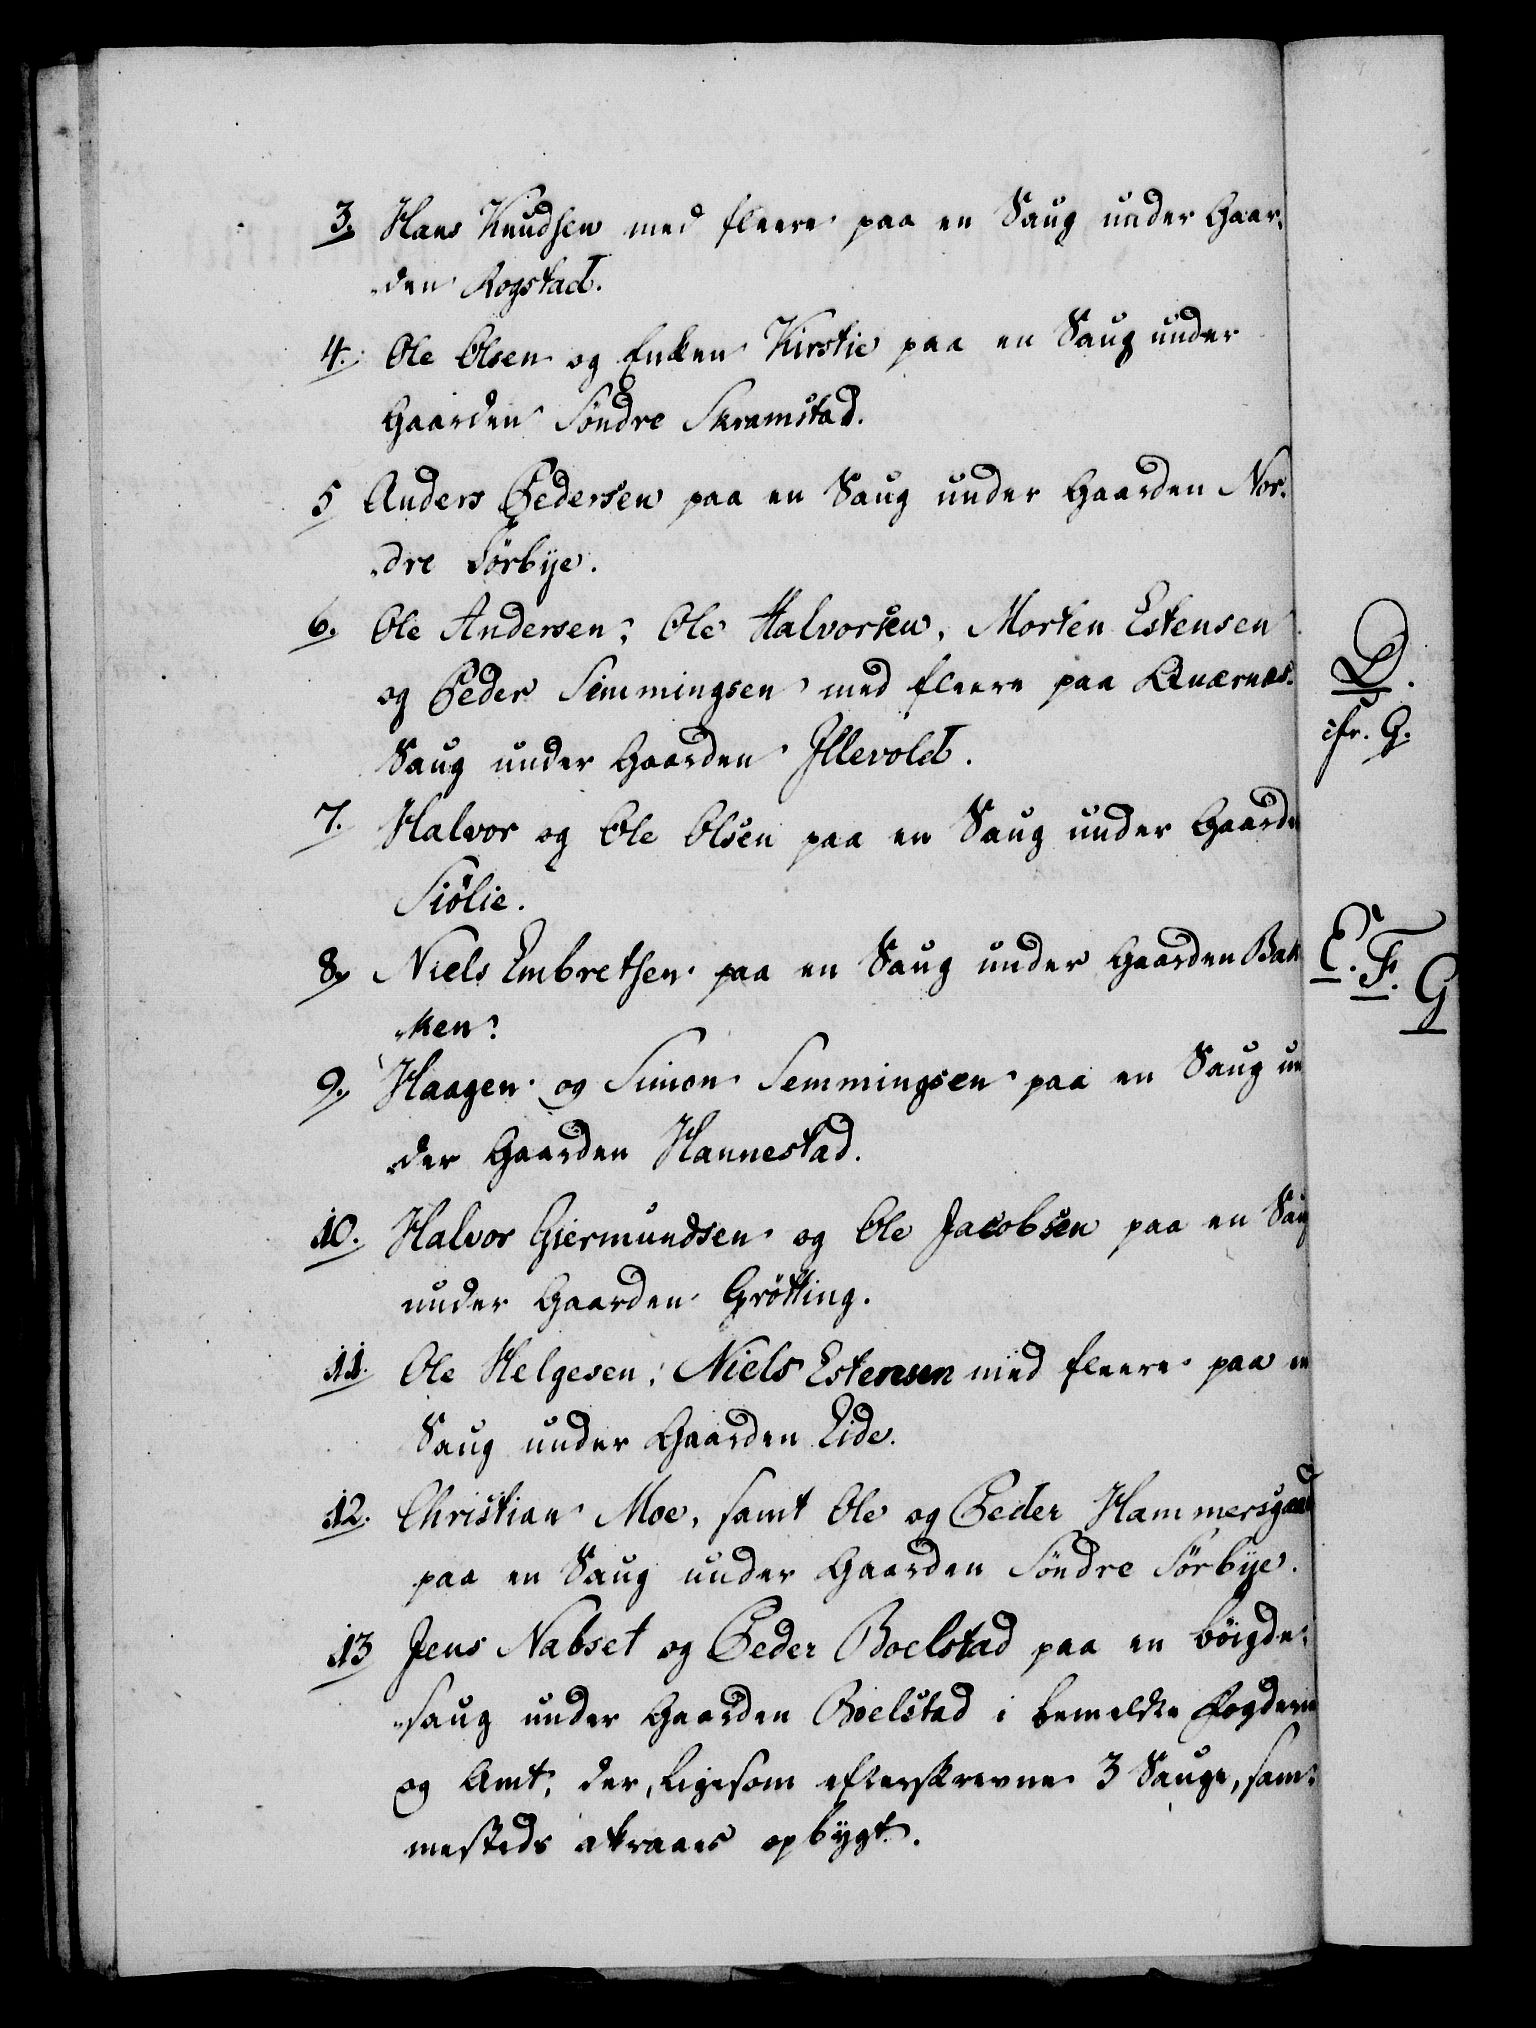 3. Hans Knudsen med fleere paa en Saug under Gaar:
den Rogstad.
4. Ole Olsen og Enken Kirstie paa en Saug under
Gaarden Söndre Skramstad.
5 Anders Pedersen paa en Saug under Gaarden Nor:
dre Sörbye.
6. Ole Andersen, Ole Halvorsen, Morten Estensen
og Peder Simmingsen med fleere paa Quærnæs:
Saug under Gaarden Illevold.
D.
cfr. G.
7. Halvor og Ole Olsen paa en Saug under Gaarden
Siölie.
8. Niels Embretsen paa en Saug under Gaarden Bak
ken.
E. F. G
9. Haagen og Simon Semmingsen paa en Saug un
der Gaarden Hannestad.
10. Halvor Giermundsen og Ole Jacobsen paa en Saug
under Gaarden Grötting.
11. Ole Helgesen, Niels Estensen med fleere paa en
Saug under Gaarden Eide.
12. Christian Moe, samt Ole og Peder Hammersgaard
paa en Saug under Gaarden Söndre Sörbye.
13 Jens Nabset og Peder Boelstad paa en böigde:
saug under Gaarden Boelstad i bemeldte Fogderie
og Amt, der, ligesom efterskrevne 3 Sauge, sam:
mesteds opbygt.